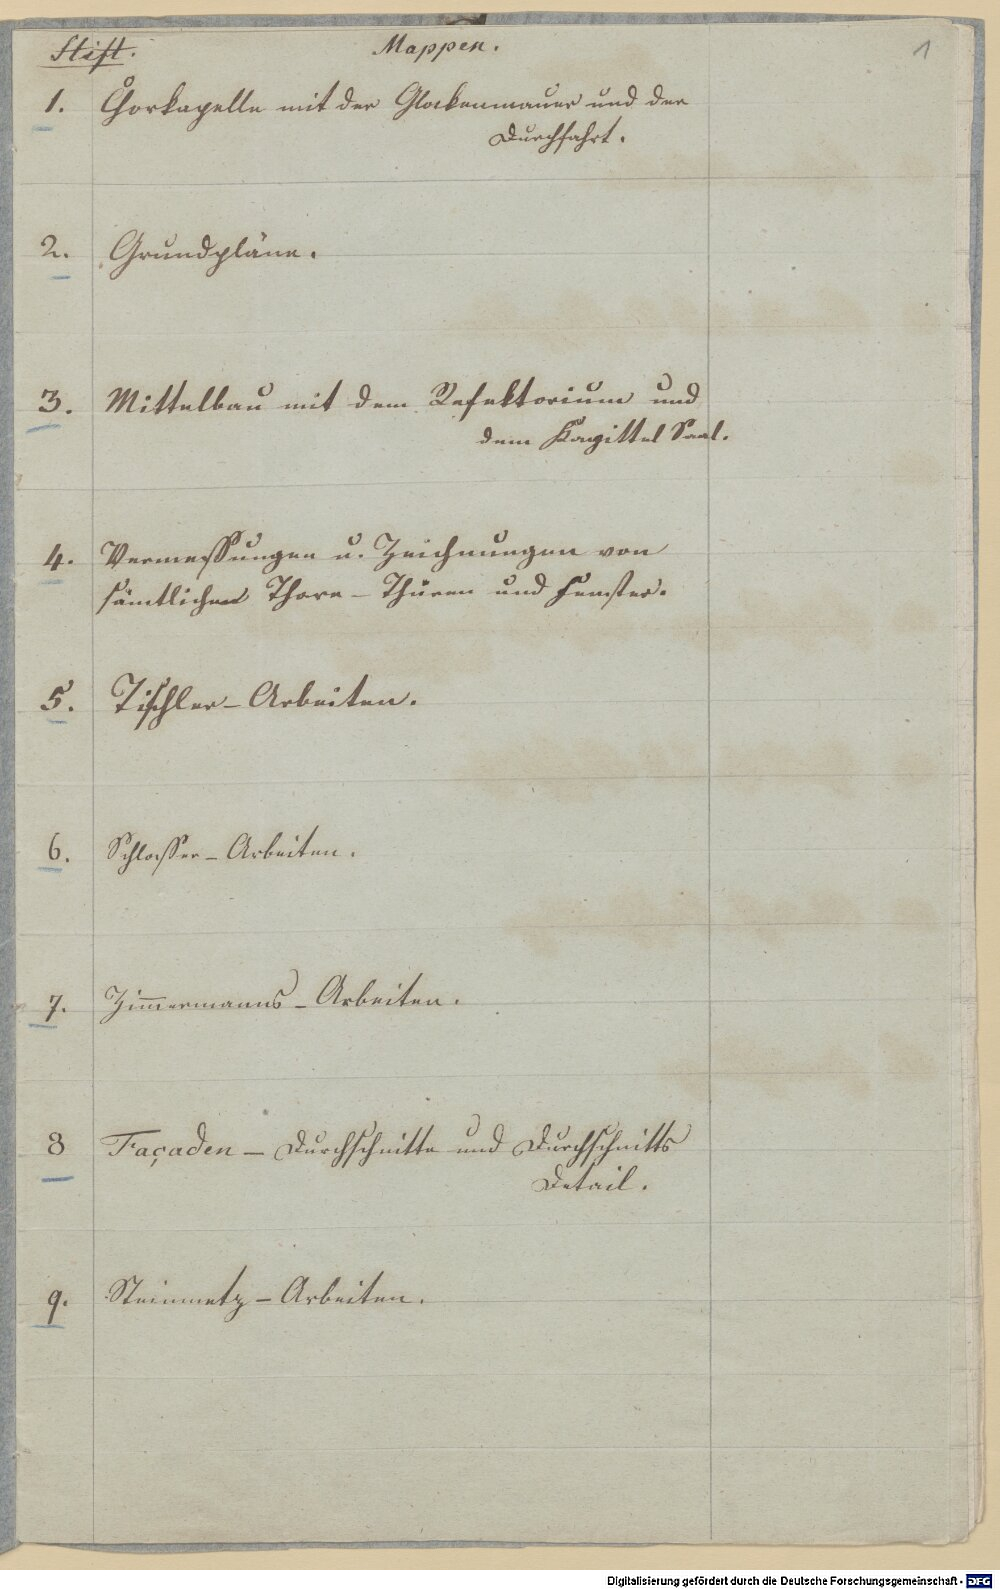 Stift. Mappen. 1
1. Chorkapelle mit der Glockenmauer und der
Durchfahrt.
2. Grundpläne.
3. Mittelbau mit dem Refektorium und
dem Kapittel Saal.
4. Vermessungen u. Zeichnungen von
sämtlichen Thore - Thüren und Fenster.
5. Tischler - Arbeiten.
6. Schlosser - Arbeiten.
7. Zimmermanns - Arbeiten.
8 Façaden - Durchschnitte und Durchschnitts
Detail.
9. Steinmetz - Arbeiten.
Digitalisierung gefördert durch die Deutsche Forschungsgemeinschaft - DFG